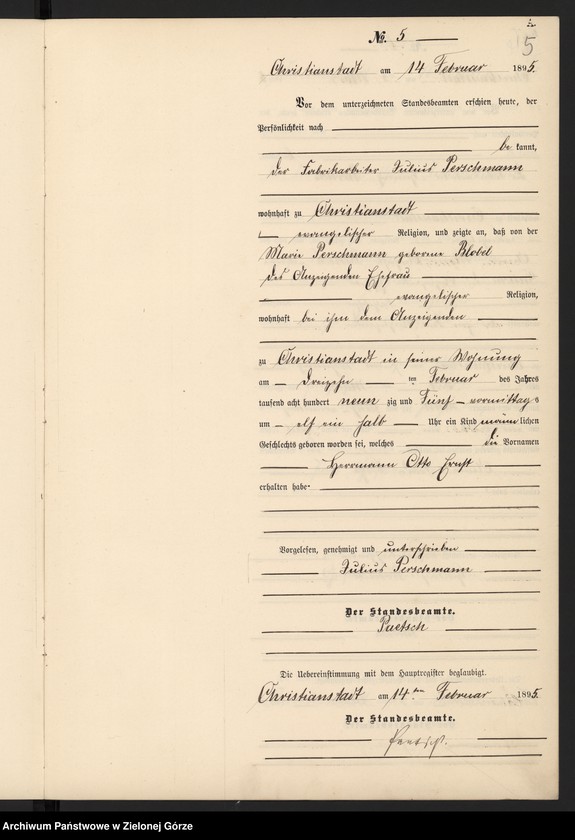 A.
5
No. 5
Christianstadt am 14 Februar 1895.
Vor dem unterzeichneten Standesbeamten erschien heute, der
Persönlichkeit nach
be kannt,
der Fabrikarbeiter Julius Perschmann
wohnhaft zu Christianstadt
evangelischer Religion, und zeigte an, daß von der
Marie Perschmann geborene Blobel
des Anzeigenden Ehefrau
evangelischer Religion,
wohnhaft bei ihm dem Anzeigenden
zu Christianstadt in seiner Wohnung
am dreizehn ten Februar des Jahres
tausend acht hundert neun zig und Fünf vormittags
um elf ein halb Uhr ein Kind männ lichen
Geschlechts geboren worden sei, welches die Vornamen
Herrmann Otto Ernst
erhalten habe
Vorgelesen, genehmigt und unterschrieben
Julius Perschmann
Der Standesbeamte.
Paetsch
Die Uebereinstimmung mit dem Hauptregister beglaubigt.
Christianstadt am 14ten Februar 1895.
Der Standesbeamte.
Paetsch.
Archiwum Państwowe w Zielonej Górze